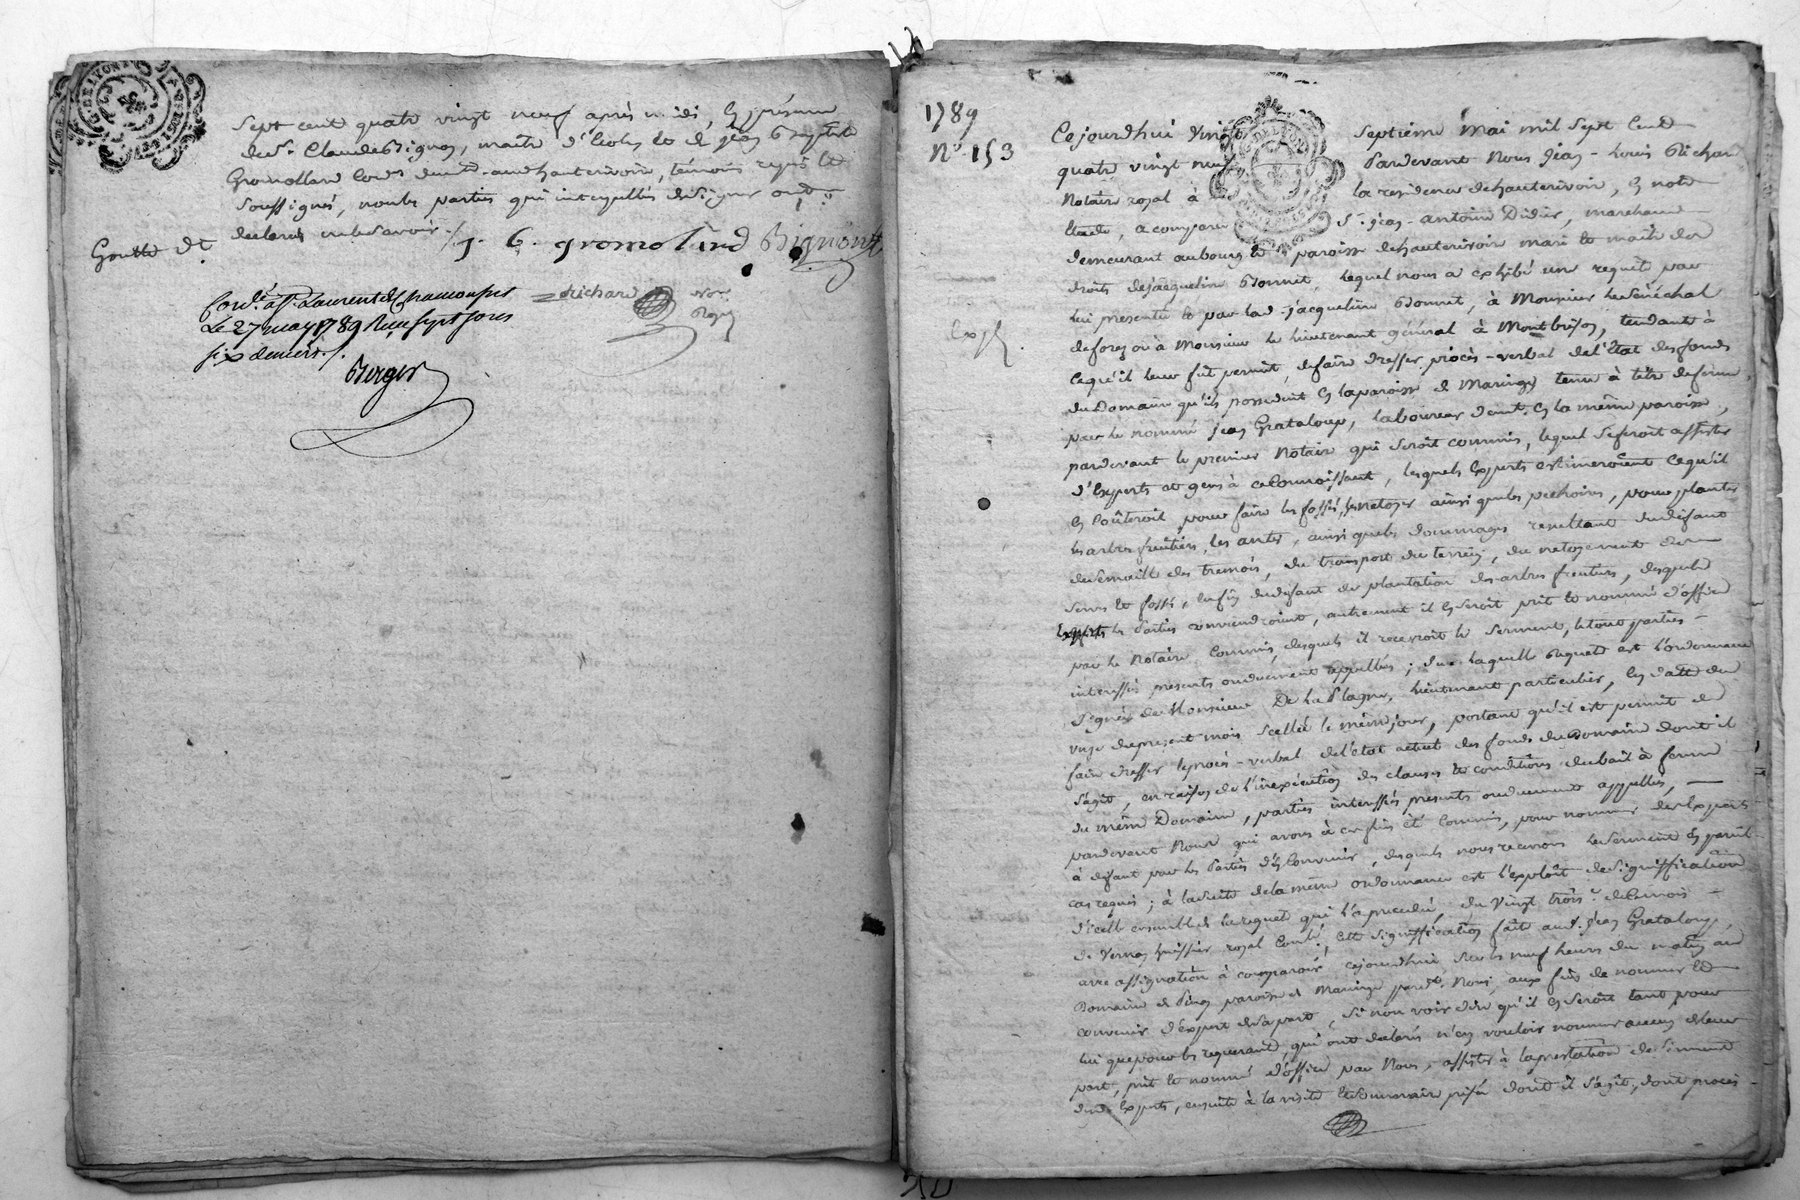 sept cent quatre vingt neuf après midi, En présence
de Sr. Claude Bignon, maitre d'Ecole, et de jean Baptiste
Gromollard demt. aud hauterivoir, témoins requis et
soussignés, non les parties qui interpellés de signer ont
declaré ne le savoir ./.
j. b. gromolard Bignont
Goutte dt
richard
Conlé. à St. Laurent de Chamousset
Le 27 may 1789 Reçu sept sous
six deniers ./.
Berger
1789
No. 153
Cejourdhui vingt septieme Mai mil sept Cent
quatre vingt neuf Pardevant Nous jean-Louis Richard
Notaire royal à la residence de hauterivoir, En
a comparu Sr. jean-antoine Didier, marchand
demeurant au bourg et paroisse de hauterivoir mari et maitre des
droits de jacqueline Bonnet, lequel nous a exhibé une requete par
lui presentée et par lad. jacqueline Bonnet, à Monsieur le Sénéchal
de forez ou à Monsieur le lieutenant général à Montbrison, tendante à
Expé.
cequ'il leur fut permit, de faire dresser procès-verbal de l'Etat des fonds
du Domaine qu'ils possedent En la paroisse de Maringe tenu à titre de ferme,
par le nommé jean Grataloup, laboureur demt. En la même paroisse,
pardevant le premier Notaire qui seroit commis, lequel se feroit assister
d'Experts et gens à ce Connoissant, lesquels Experts estimeroient Cequ'il
En Coûteroit pour faire les fossés, les netoyer ainsi que les pechoires, pour planter
les arbres fruitiers, les anter, ainsi que les dommages resultant du défaut
de semaille des tremois, du transport du terrein, du netoyement des
serves et fossés, enfin du défaut de plantation des arbres fruitiers, desquels
Experts les Parties conviendroient, autrement il En seroit prit et nommé d'office
par le Notaire Commis, desquels il recevroit le serment, le tout parties
interessées presents ou duement appellées ; sur laquelle Requete est l'ordonnance
signée de Monsieur De la Plagne, Lieutenant particulier, En date du
du present mois scellée le même jour, portant qu'il est permit de
faire dresser le procès-verbal de l'etat actuel des fonds du Domaine dont il
s'agit, en raison de l'inexécution des clauses et conditions du bail à ferme
du même Domaine, parties interessées presents ou duement appellées,
pardevant Nous qui avons à ces fins été Commis, pour nommer des Experts
à défaut par les Parties d'En Convenir, desquels nous recevrons le serment En pareil
cas requis ; à la suite de la même ordonnance est l'exploit de signiffication
d'icelle ensemble de la requete qui l'a precedée, du vingt trois e. de Ce mois
de Vernay huissier royal Conlé, cette signiffication faite aud. jean Grataloup,
avec assignation à comparoir cejourdhui sur les neuf heures du matin aud
Domaine de paroisse de Maringe pardt. Nous, aux fins de nommer et
convenir d'Expert de sa part, si non voir dire qu'il En seroit tant pour
lui que pour les requerant, qui ont declaré n'en vouloir nommer aucun de leur
part, prit et nommé d'office par Nous, assister à la prestation de serment
desd Experts, ensuite à la visite et sommaire prisée dont il s'agit, dont procès-